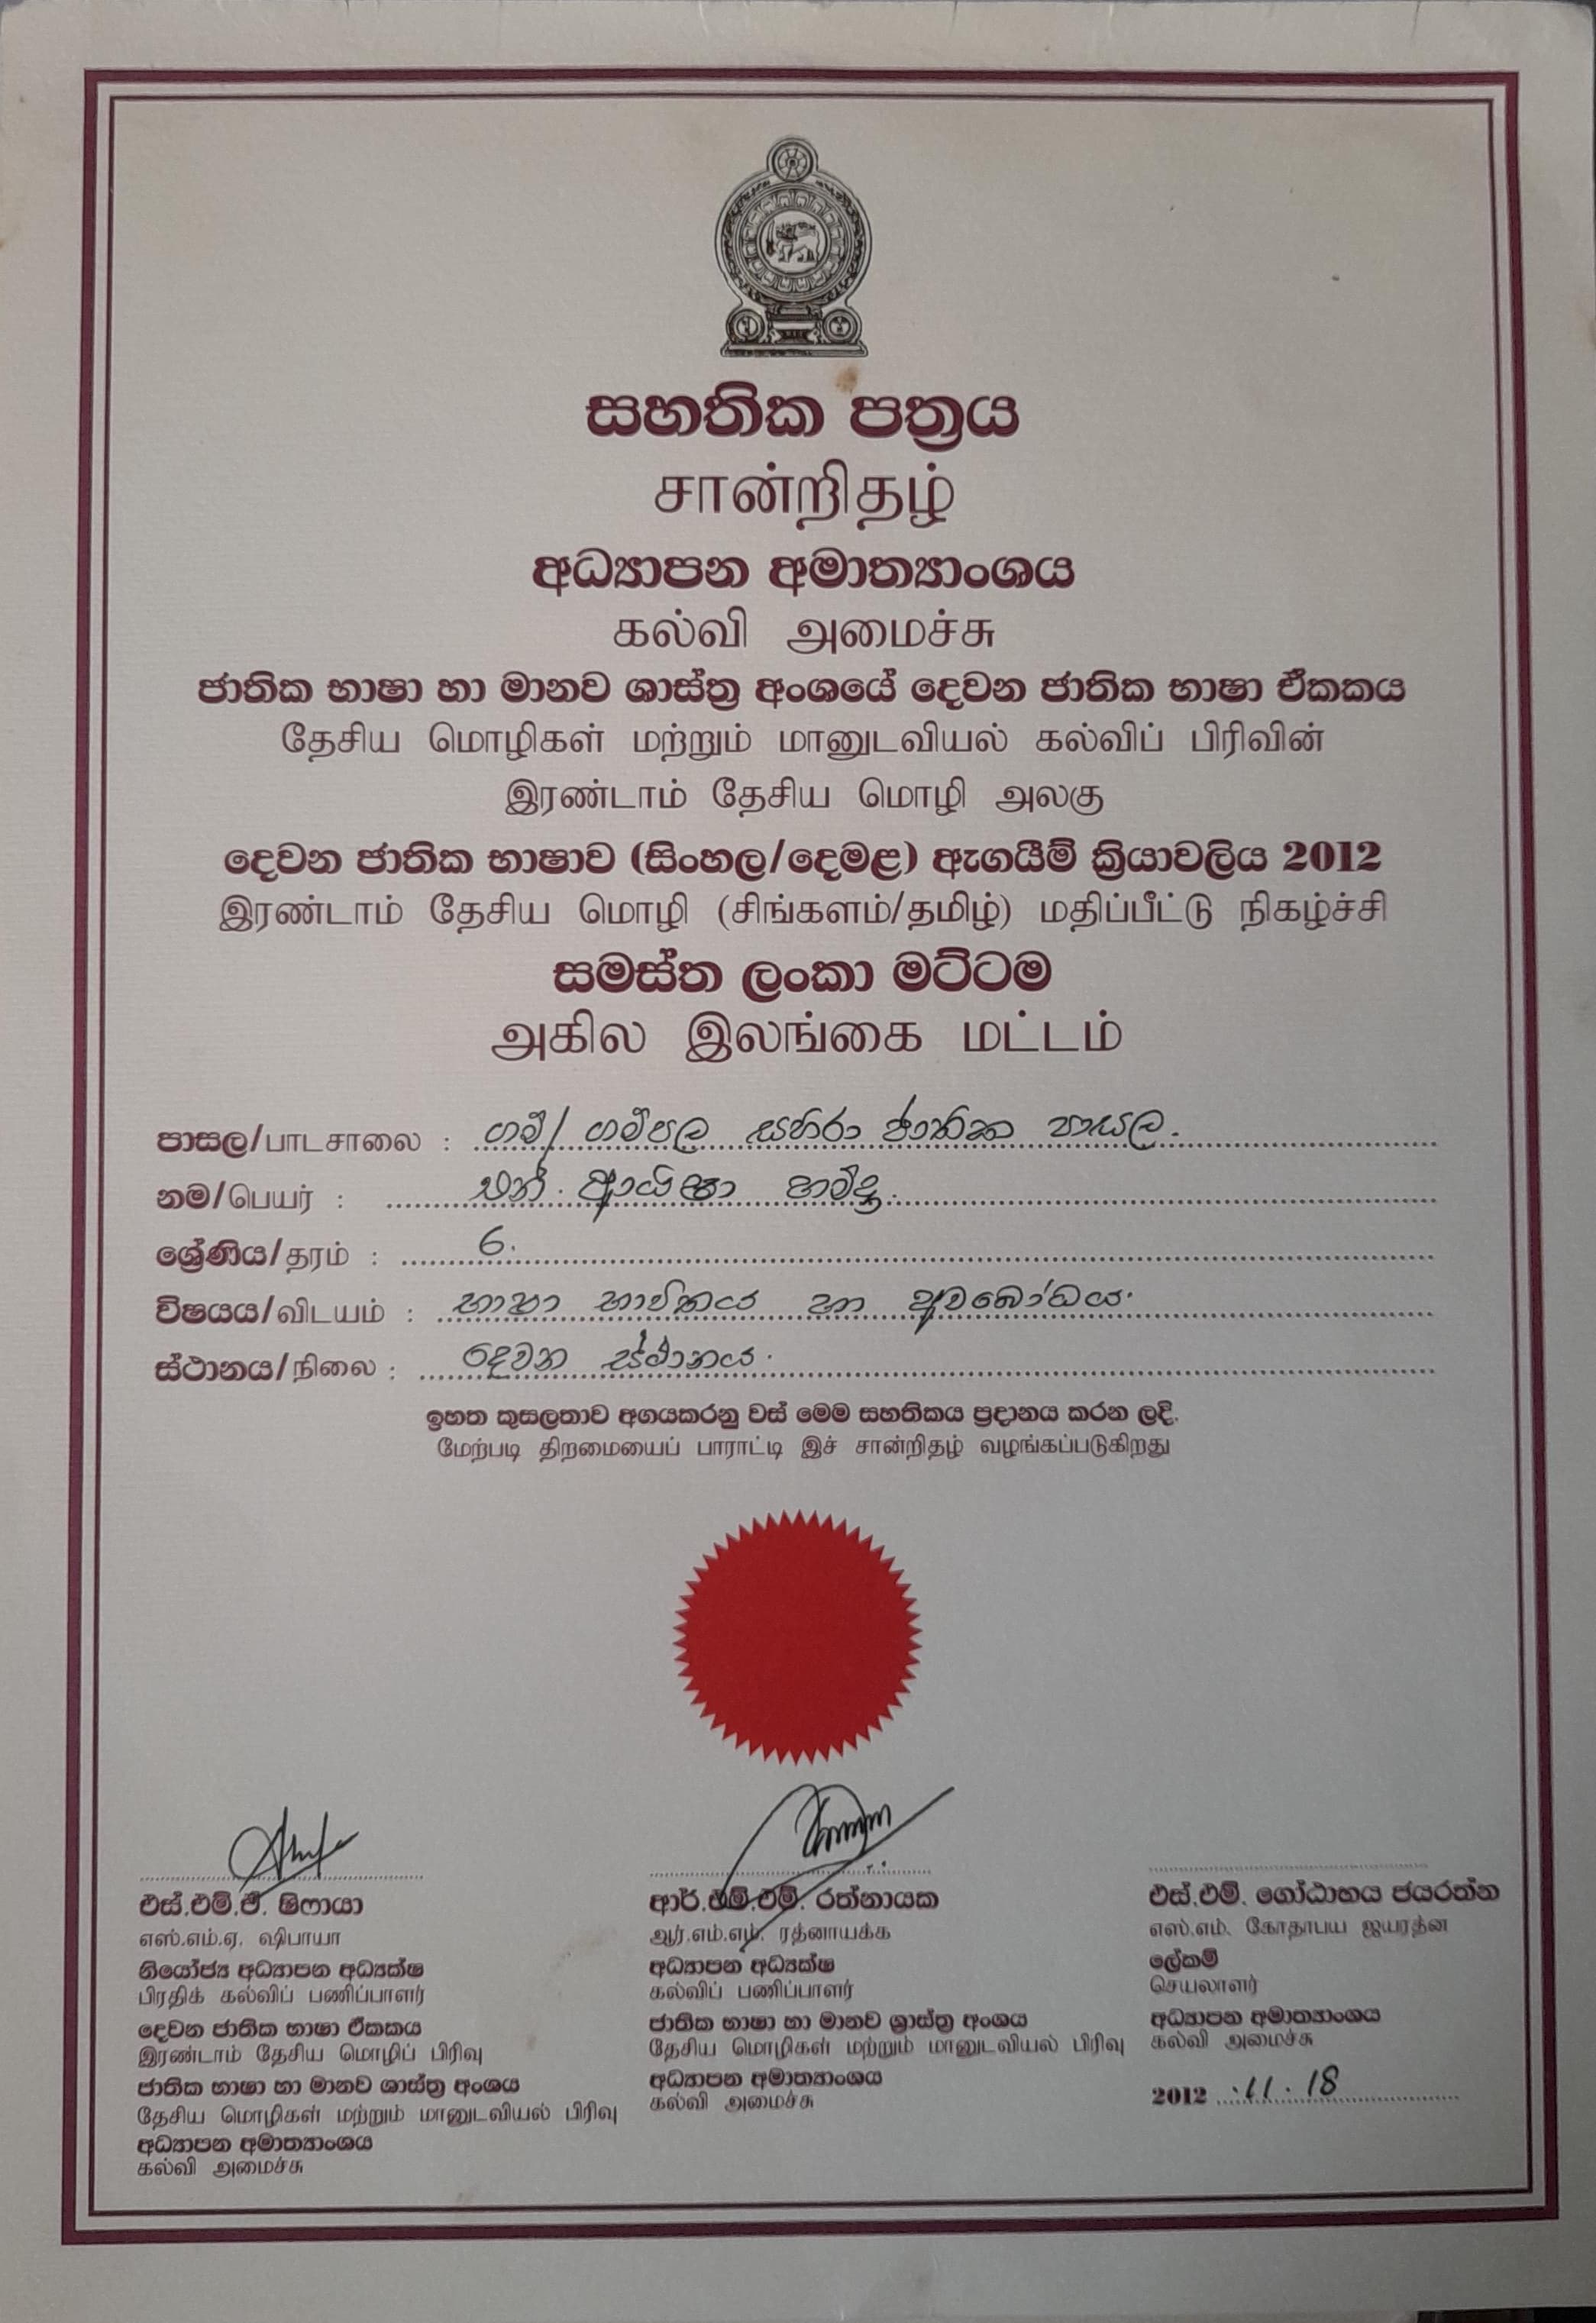 සහතික පත්‍රය
சான்றிதழ்
අධ්‍යාපන අමාත්‍යාංශය
கல்வி அமைச்சு
ජාතික භාෂා හා මානව ශාස්ත්‍ර අංශයේ දෙවන ජාතික භාෂා ඒකකය
தேசிய மொழிகள் மற்றும் மானுடவியல் கல்விப் பிரிவின்
இரண்டாம் தேசிய மொழி அலகு
දෙවන ජාතික භාෂාව (සිංහල/දෙමළ) ඇගයීම් ක්‍රියාවලිය 2012
இரண்டாம் தேசிய மொழி (சிங்களம்/தமிழ்) மதிப்பீட்டு நிகழ்ச்சி
සමස්ත ලංකා මට්ටම
அகில இலங்கை மட்டம்
පාසල/பாடசாலை : ගම්/ ගම්පල සහිරා ජාතික පාසල.
නම/பெயர் : එන්. ආයිෂා හම්දා.
ශ්‍රේණිය/தரம் : 6.
විෂයය/விடயம் : භාෂා භාවිතය හා අවබෝධය.
ස්ථානය/நிலை : දෙවන ස්ථානය.
ඉහත කුසලතාව අගයකරනු වස් මෙම සහතිකය ප්‍රදානය කරන ලදි.
மேற்படி திறமையைப் பாராட்டி இச் சான்றிதழ் வழங்கப்படுகிறது
එස්.එම්.ඒ. ෂිෆායා
எஸ்.எம்.ஏ. ஷிபாயா
නියෝජ්‍ය අධ්‍යාපන අධ්‍යක්ෂ
பிரதிக் கல்விப் பணிப்பாளர்
දෙවන ජාතික භාෂා ඒකකය
இரண்டாம் தேசிய மொழிப் பிரிவு
ජාතික භාෂා හා මානව ශාස්ත්‍ර අංශය
தேசிய மொழிகள் மற்றும் மானுடவியல் பிரிவு
අධ්‍යාපන අමාත්‍යාංශය
கல்வி அமைச்சு
ආර්.එම්.එම්. රත්නායක
ஆர்.எம்.எம். ரத்னாயக்க
අධ්‍යාපන අධ්‍යක්ෂ
கல்விப் பணிப்பாளர்
ජාතික භාෂා හා මානව ශ්‍රාස්ත්‍ර අංශය
தேசிய மொழிகள் மற்றும் மானுடவியல் பிரிவு
අධ්‍යාපන අමාත්‍යාංශය
கல்வி அமைச்சு
එස්.එම්. ගෝඨාභය ජයරත්න
எஸ்.எம். கோதாபய ஜயரத்ன
ලේකම්
செயலாளர்
අධ්‍යාපන අමාත්‍යාංශය
கல்வி அமைச்சு
2012 .11.18